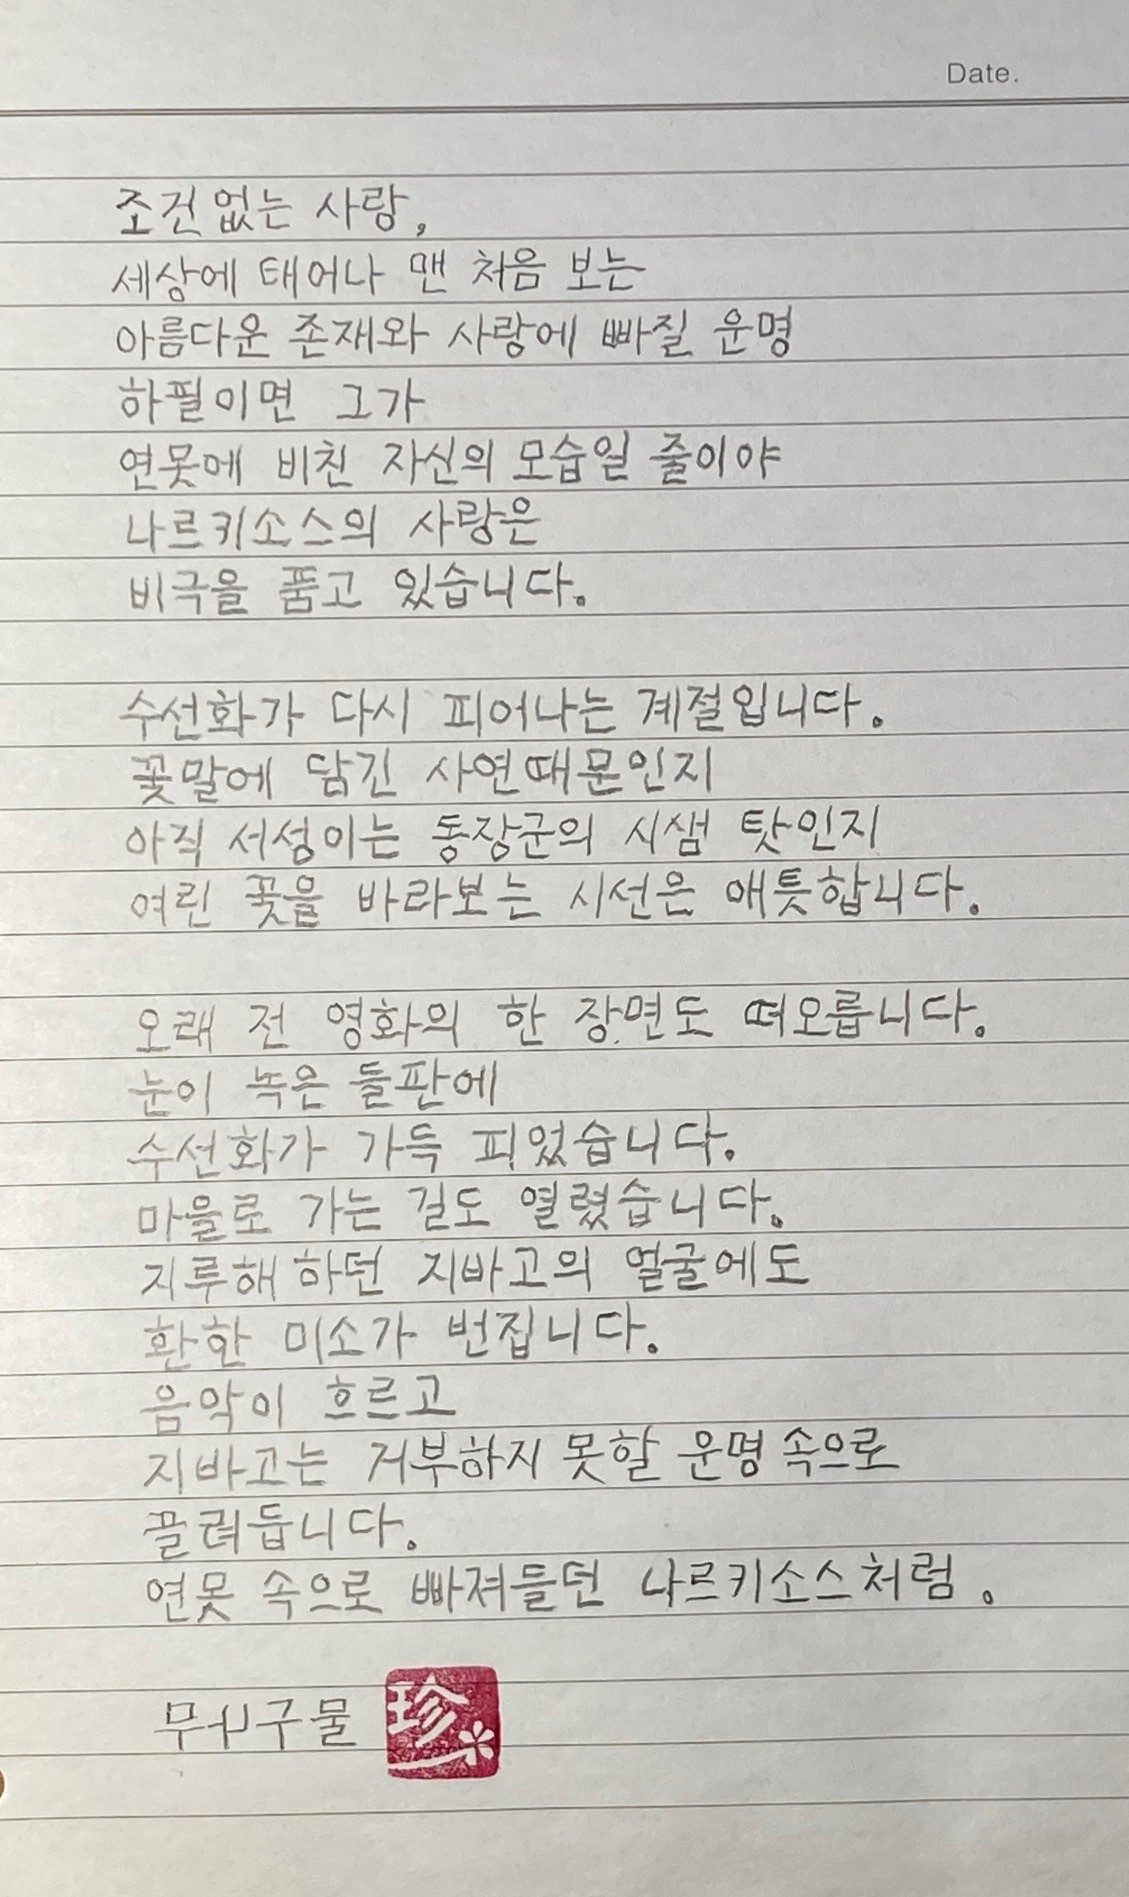 Date.
조건 없는 사랑,
세상에 태어나 맨 처음 보는
아름다운 존재와 사랑에 빠질 운명
하필이면 그가
연못에 비친 자신의 모습일 줄이야
나르키소스의 사랑은
비극을 품고 있습니다.
수선화가 다시 피어나는 계절입니다.
꽃말에 담긴 사연때문인지
아직 서성이는 동장군의 시샘 탓인지
여린 꽃을 바라보는 시선은 애틋합니다.
오래 전 영화의 한 장면도 떠오릅니다.
눈이 녹은 들판에
수선화가 가득 피었습니다.
마을로 가는 길도 열렸습니다.
지루해 하던 지바고의 얼굴에도
환한 미소가 번집니다.
음악이 흐르고
지바고는 거부하지 못할 운명 속으로
끌려듭니다.
연못 속으로 빠져들던 나르키소스처럼.
珍